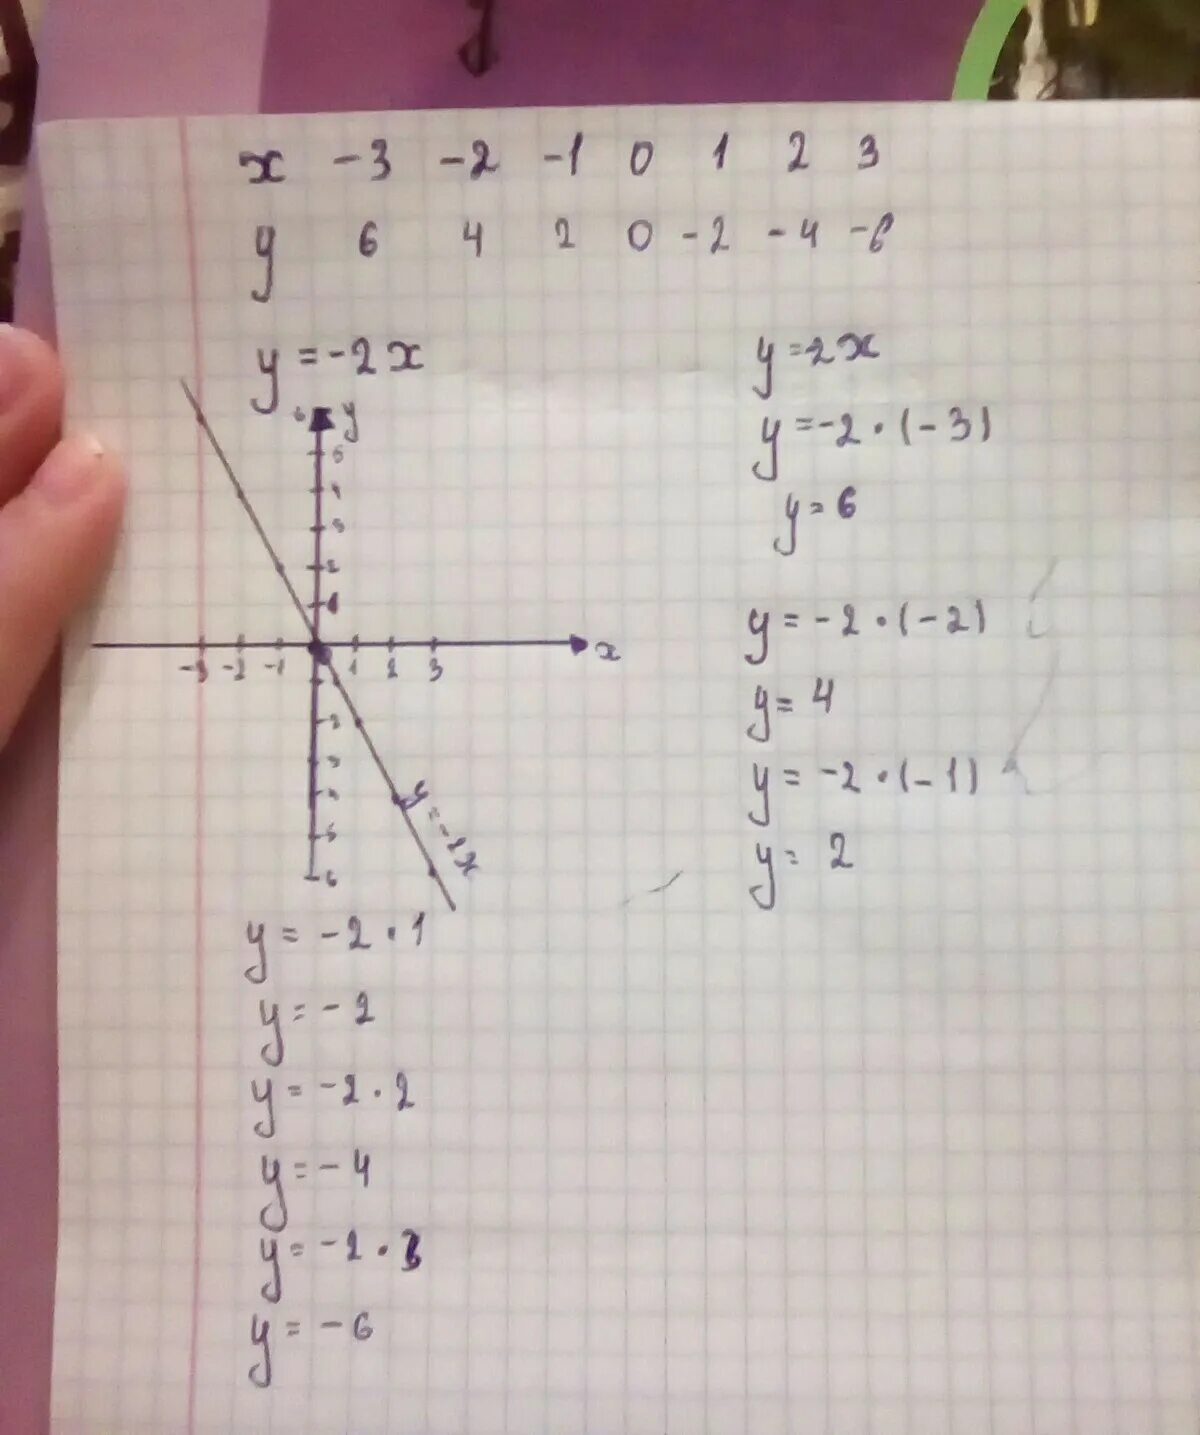 x -3 -2 -1 0 1 2 3
y 6 4 2 0 -2 -4 -6
y = -2x
6 y
5
4
3
2
1
-3 -2 -1 1 2 3 x
2
5
6
y = -2x
y = -2 · 1
y = -2
y = -2 · 2
y = -4
y = -2 · 3
y = -6
y = 2x
y = -2 · (-3)
y = 6
y = -2 · (-2)
y = 4
y = -2 · (-1)
y = 2